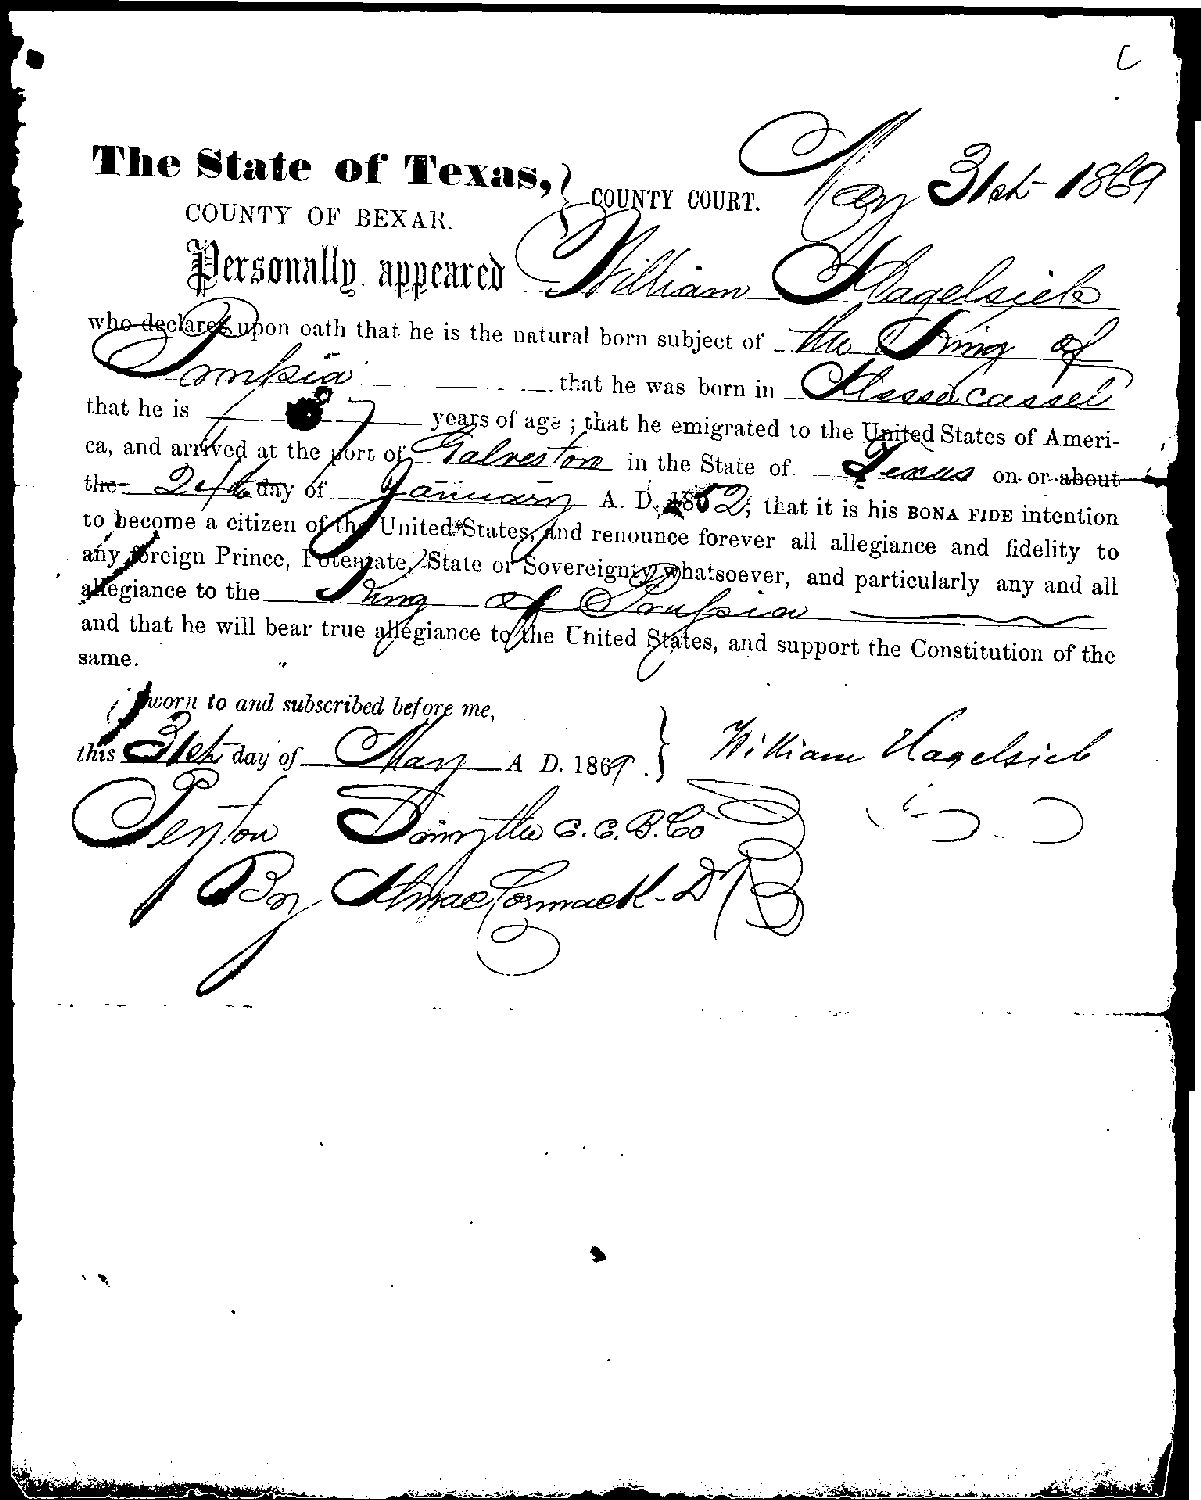 The State of Texas, } COUNTY COURT. May 31st 1869
COUNTY OF BEXAR.
Personally appeared William Hagelsieb
who declares upon oath that he is the natural born subject of the King of
Prussia that he was born in Hesse Cassel
that he is 37 years of age ; that he emigrated to the United States of Ameri-
ca, and arrived at the port of Galveston in the State of Texas on or about
the 24th day of January A. D. 1852; that it is his BONA FIDE intention
to become a citizen of the United States, and renounce forever all allegiance and fidelity to
any foreign Prince, Potentate, State or Sovereignty whatsoever, and particularly any and all
allegiance to the King of Prussia
and that he will bear true allegiance to the United States, and support the Constitution of the
same.
Sworn to and subscribed before me,
this 31st day of May A D. 1869. } William Hagelsieb
Smythe C. C. B. Co
By MacCormack Dy